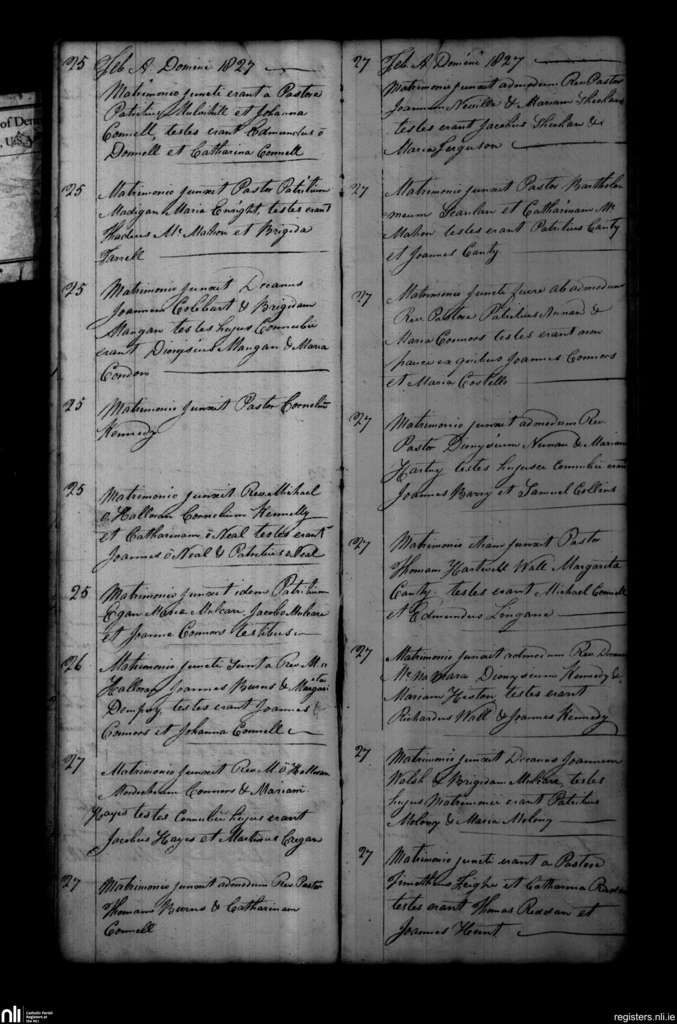 of Den
25 Feb A. Domini 1827
Matrimonio juncti erant a Pastore
Patritius Mulvihill et Johanna
Connell, testes erant Edmundus ō
Donnell et Catharina Connell
25 Matrimonio junxit Pastor Patritium
Madigan Maria Enright, testes erant
Thadeus Mc Mahon et Brigida
Farrell
25 Matrimonio junxit Decanus
Joannem Colebart & Brigidam
Mangan testes hujus Connubii
erant Dionysius Mangan & Maria
Condon
25 Matrimonio junxit Pastor Cornelium
Kennedy
25 Matrimonio junxit Revd Michael
ō Halloran Cornelium Kennelly
et Catharinam ō Neal testes erant
Joannes ō Neal & Patritius ō Neal
25 Matrimonio junxit idem Patritium
Egan Maria Mulcare, Jacobo Mulcare
et Joanne Connors testibus
26 Matrimonio juncti sunt a Rev M ō
Halloran Joannes Burns & Margarita
Dempsy, testes erant Joannes
Connors et Johanna Connell
27 Matrimonio junxit Rev M ō Halloran
Connors & Mariam
Hayes testes Connubii hujus erant
Jacobus Hayes et Martinus Cregan
27 Matrimonio junxit admodum Rev Pastor
Thomam Burns & Catharinam
Connell
27 Feb A. Domini 1827
Matrimonio junxit admodum Rev Pastor
Joannem Neville & Mariam Sheehan
testes erant Jacobus Sheehan &
Maria Ferguson
27 Matrimonio junxit Pastor Bartholo
meum Scanlan et Catharinam Mc
Mahon testes erant Patritius Canty
et Joannes Canty
27 Matrimonio juncti fuere ab admodum
Rev. Pastore Patritius Nunan &
Maria Connors testes erant non
pauci ex quibus Joannes Connors
et Maria Costello
27 Matrimonio junxit admodum Rev.
Pastor Dionysium Nunan & Mariam
Hartny testes hujusce connubii erant
Joannes Barry et Samuel Collins
27 Matrimonio etiam junxit Pastor
Thomam Hartwell Wall Margarita
Canty. testes erant Michael Connell
et Edmundus Lengane
27 Matrimonio junxit admodum Rev Decanus
Mc Namara Dionysium Kennedy &
Mariam Heston, testes erant
Richardus Wall & Joannes Kennedy
27 Matrimonio junxit Decanus Joannem
Walsh & Brigidam Mulcare, testes
hujus Matrimonii erant Patritius
Molony & Maria Molony
27 Matrimonio juncti erant a Pastore
Timotheus Leighe et Catharina Reddan
testes erant Thomas Reddan et
Joannes Hunt
nli
Catholic Parish
Registers at
the NLI
registers.nli.ie